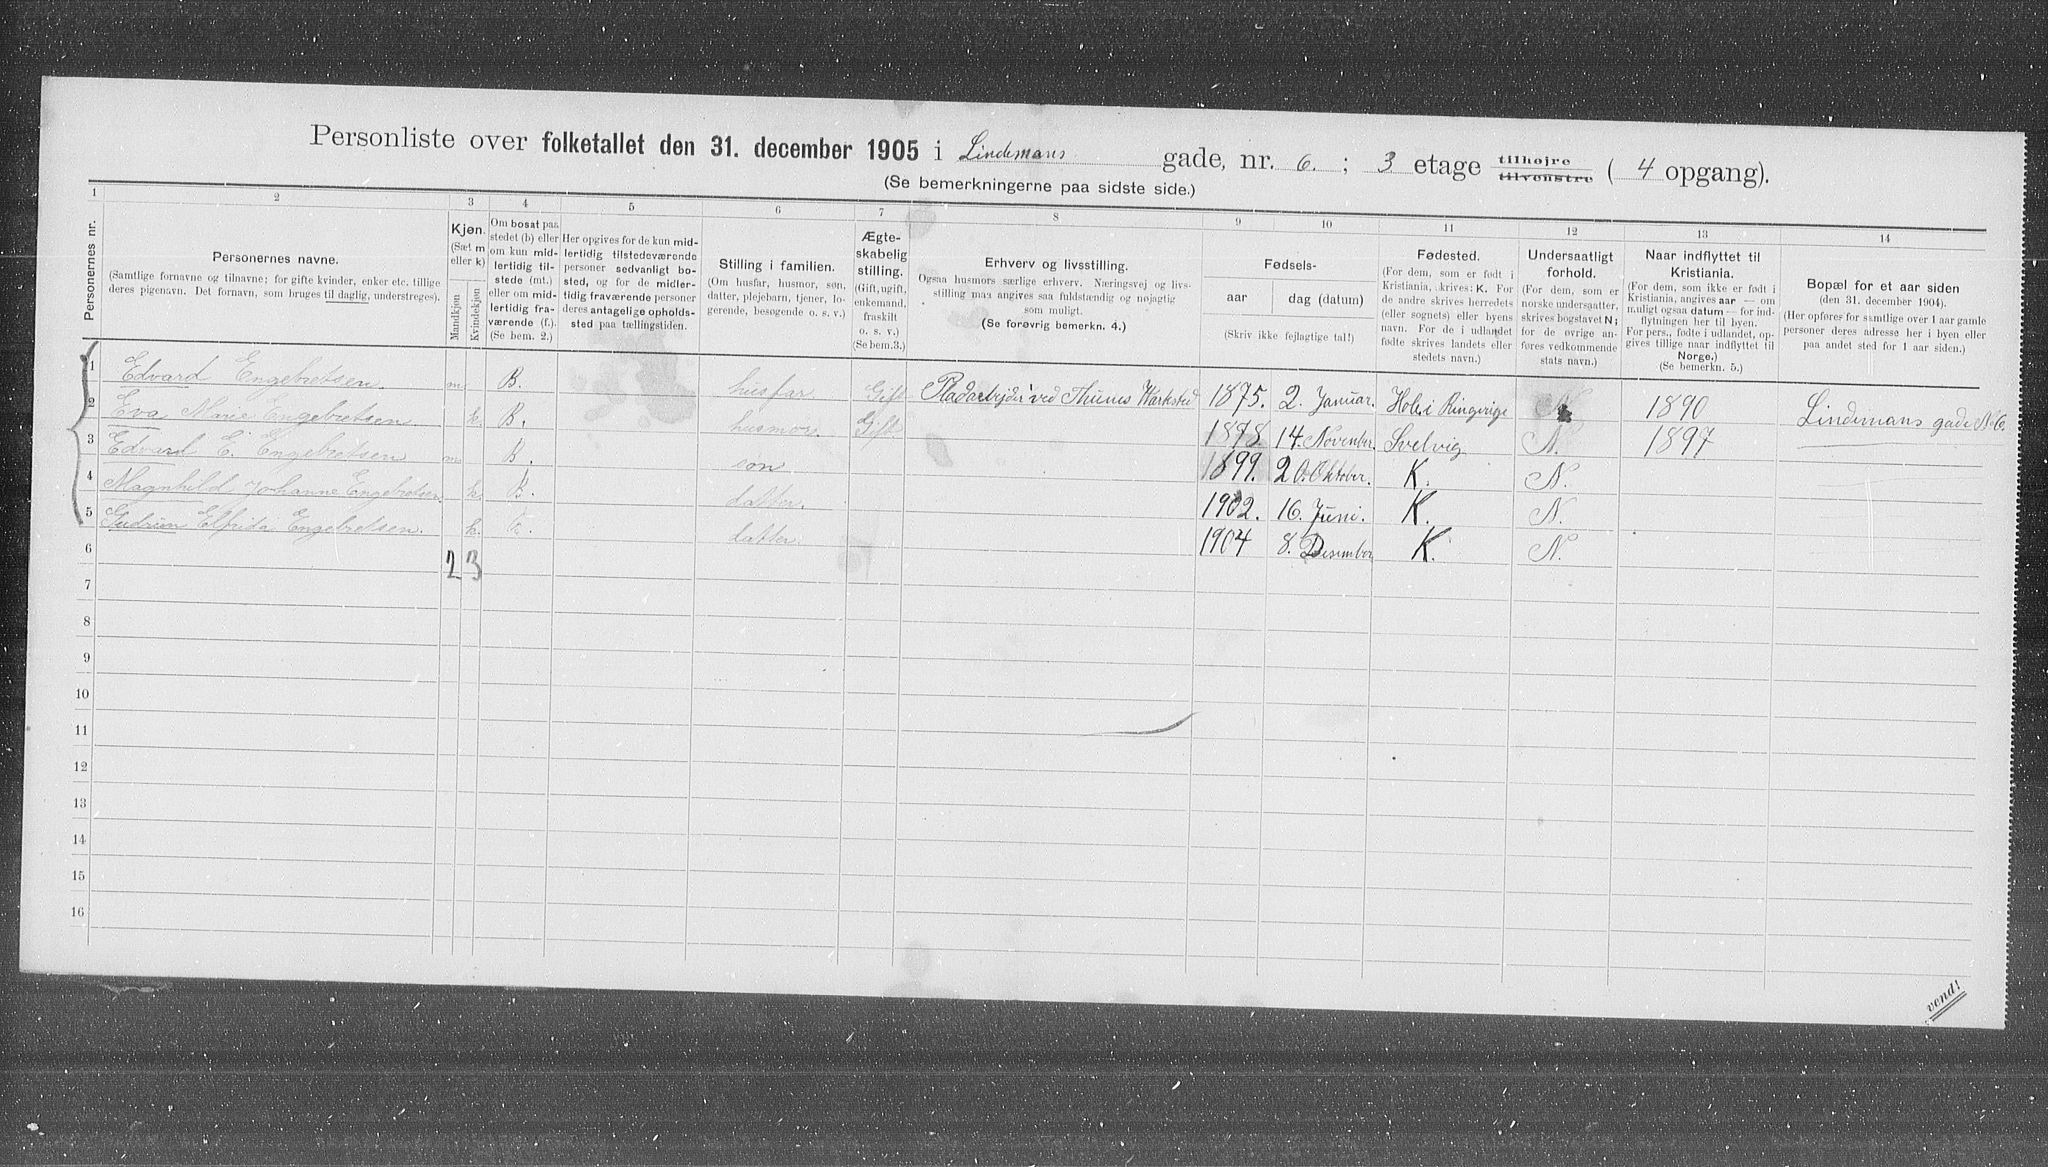 Personliste over folketallet den 31. december 1905 i Lindemans gade, nr. 6. ; 3 etage tilhøjre tilvenstre ( 4 opgang).
(Se bemerkningerne paa sidste side.)
1 2 3 4 5 6 7 8 9 10 11 12 13 14
Personernes nr.
Personernes navne.
(Samtlige fornavne og tilnavne; for gifte kvinder, enker etc. tillige
deres pigenavn. Det fornavn, som bruges til daglig, understreges).
Kjøn.
(Sæt m
eller k)
Mandkjøn
Kvindekjøn
Om bosat paa
stedet (b) eller
om kun mid-
lertidig til-
stede (mt.)
eller om mid-
lertidig fra-
værende (f.).
(Se bem. 2.)
Her opgives for de kun mid-
lertidig tilstedeværende
personer sedvanligt bo-
sted, og for de midler-
tidig fraværende personer
deres antagelige opholds-
sted paa tællingstiden.
Stilling i familien.
(Om husfar, husmor, søn,
datter, plejebarn, tjener, lo-
gerende, besøgende o. s. v.)
Ægte-
skabelig
stilling.
(Gift, ugift,
enkemand,
fraskilt
o. s. v.)
(Se bem.3.)
Erhverv og livsstilling.
Ogsaa husmors særlige erhverv. Næringsvej og livs-
stilling maa angives saa fuldstændig og nøjagtig
som muligt.
(Se forøvrig bemerkn. 4.)
Fødsels-
aar dag (datum)
(Skriv ikke fejlagtige tal!)
Fødested.
(For dem, som er født i
Kristiania, skrives: K. For
de andre skrives herredets
(eller sognets) eller byens
navn. For de i udlandet
fødte skrives landets eller
stedets navn.)
Undersaatligt
forhold.
(For dem, som er
norske undersaatter,
skrives bogstavet N;
for de øvrige an-
føres vedkommende
stats navn.)
Naar indflyttet til
Kristiania.
(For dem, som ikke er født i
Kristiania, angives aar — om
muligt ogsaa datum — for ind-
flytningen her til byen.
For pers., fødte i udlandet, op-
gives tillige naar indflyttet til
Norge.)
(Se bemerkn. 5.)
Bopæl for et aar siden
(den 31. december 1904).
(Her opføres for samtlige over 1 aar gamle
personer deres adresse her i byen eller
paa andet sted for 1 aar siden.)
1 Edvard Engebretsen. m B. husfar Gift Pladarbejder ved Thunes Værksted 1875. 2. Januar. Hole i Ringrige N. 1890 Lindemans gade No 6.
2 Eva Marie Engebretsen k. B. husmor. Gift. 1878. 14. November. Svelvig N. 1897
3 Edvard E. Engebretsen m B. søn 1899. 20. Oktober. K. N.
4 Magnhild Johanne Engebretsen. k. B. datter. 1902. 16. Juni. K. N.
5 Gudrun Elfrida Engebretsen. k. B. datter. 1904 8. Desember K. N.
6 2 3
7
8
9
10
11
12
13
14
15
16
vend!